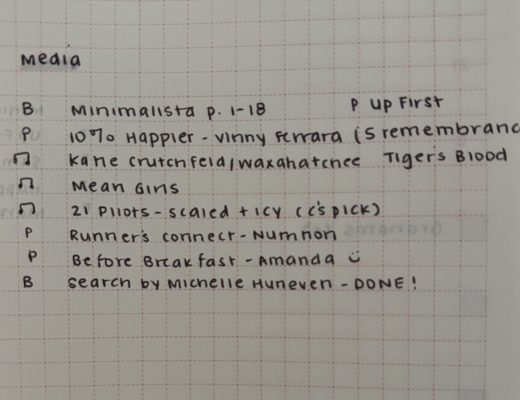 Media
B Minimalista p. 1-18 P Up First
P 10% Happier - Vinny Ferrara (5 remembranc
♫ Katie Crutchfeld/Waxahatchee Tiger's Blood
♫ Mean Girls
♫ 21 Pilots - scaled + icy (C's pick)
P Runner's connect - Numnon
P Before Breakfast - Amanda ü
B Search by Michelle Huneven - DONE!